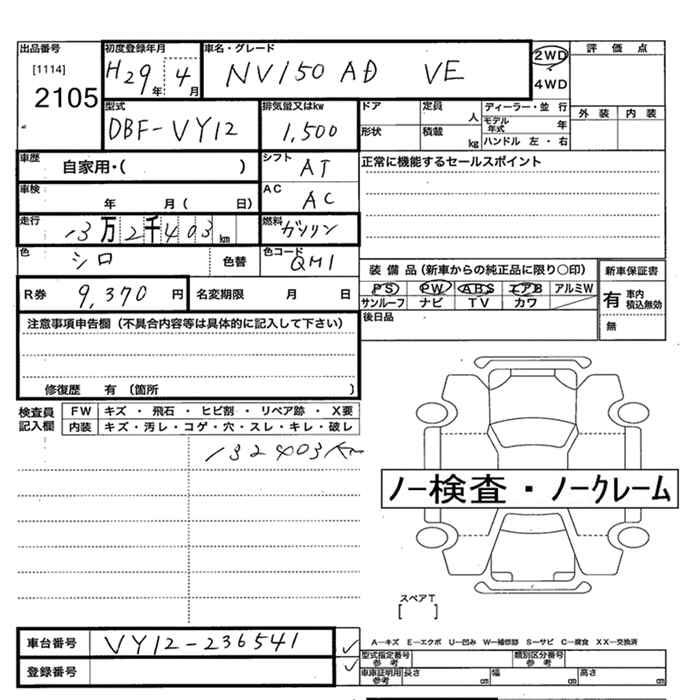 出品番号 初度登録年月 車名・グレード 2WD 評価点
[1114] H29年 4月 NV150 AD VE 4WD
2105 型式 排気量又はkw ドア 定員 人 ディーラー・並行 外装 内装
DBF-VY12 1,500 形状 積載 kg モデル年式 年
ハンドル 左・右
車歴 自家用・( ) シフト AT 正常に機能するセールスポイント
車検 年 月( 日) AC AC
走行 13万2千403km 燃料 ガソリン
色 シロ 色替 色コード QM1 装備品(新車からの純正品に限り〇印) 新車保証書
R券 9,370円 名変期限 月 日 PS PW ABS エアB アルミW 有 車内積込無効
サンルーフ ナビ TV カワ 無
注意事項申告欄(不具合内容等は具体的に記入して下さい) 後日品
修復歴 有 (箇所 )
検査員記入欄 FW キズ・飛石・ヒビ割・リペア跡・X要
内装 キズ・汚レ・コゲ・穴・スレ・キレ・破レ
132403km
ノー検査・ノークレーム
スペアT
[ ]
車台番号 VY12-236541 A―キズ E―エクボ U―凹み W―補修跡 S―サビ C―腐食 XX―交換済
登録番号 型式指定番号 参考 類別区分番号 参考
車庫証明用 参考 長さ cm 幅 cm 高さ cm